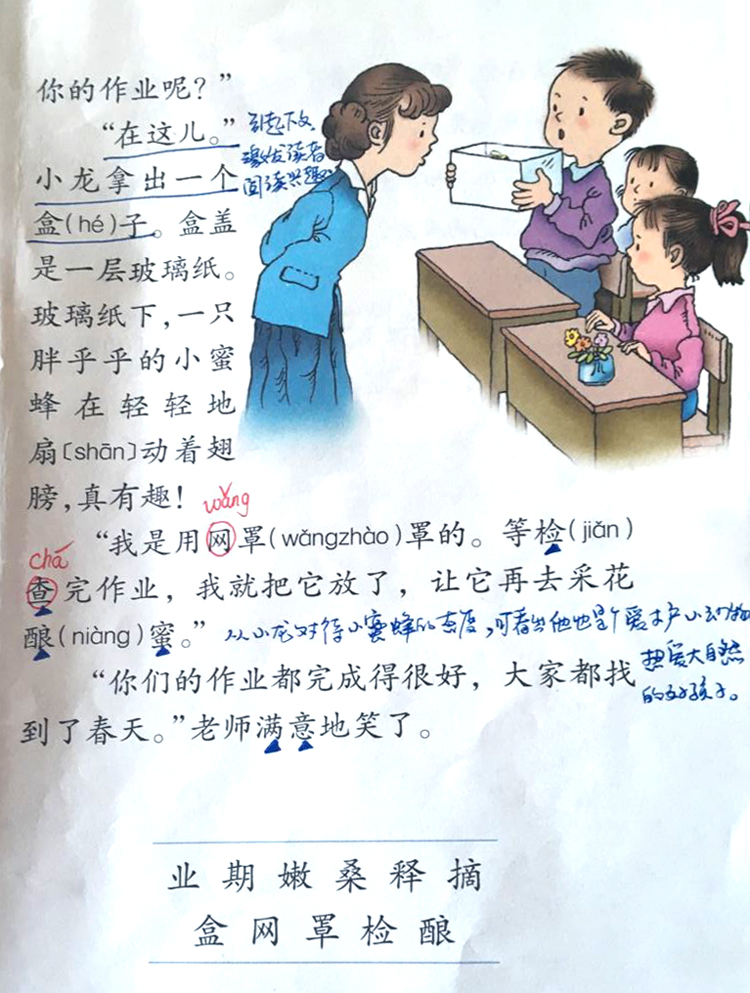 你的作业呢？”
“在这儿。”
引起下文，
激发读者
阅读兴趣。
小龙拿出一个
盒(hé)子。盒盖
是一层玻璃纸。
玻璃纸下，一只
胖乎乎的小蜜
蜂在轻轻地
扇〔shān〕动着翅
膀，真有趣！
wǎng
“我是用网罩(wǎngzhào)罩的。等检(jiǎn)
chá
查完作业，我就把它放了，让它再去采花
酿(niàng)蜜。”
从小龙对待小蜜蜂的态度，可看出他也是个爱护小动物
热爱大自然
的好孩子。
“你们的作业都完成得很好，大家都找
到了春天。”老师满意地笑了。
业期嫩桑释摘
盒网罩检酿